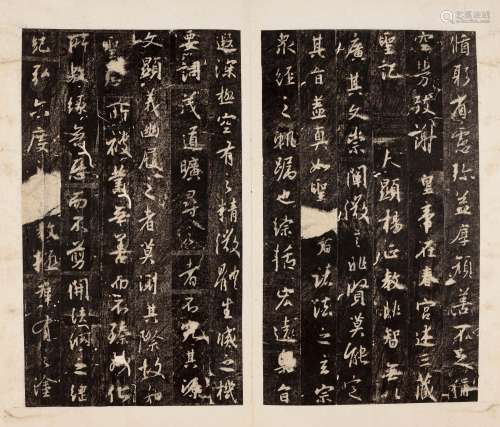 循躬省慮彌益厚顏善不足稱
空勞致謝 皇帝在春宮述三藏
聖記 夫顯揚正教非智無以
廣其文崇闡微言非賢莫能定
其旨蓋真如聖者諸法之玄宗
眾經之軌躅也綜括宏遠奧旨
遐深極空有之精微體生滅之機
要詞茂道曠尋之者不究其源
文顯義幽履之者莫測其際故知
聖所被業無善而不臻妙化
所敷緣無惡而不剪開法網之綱
紀弘六度教拯群有之塗